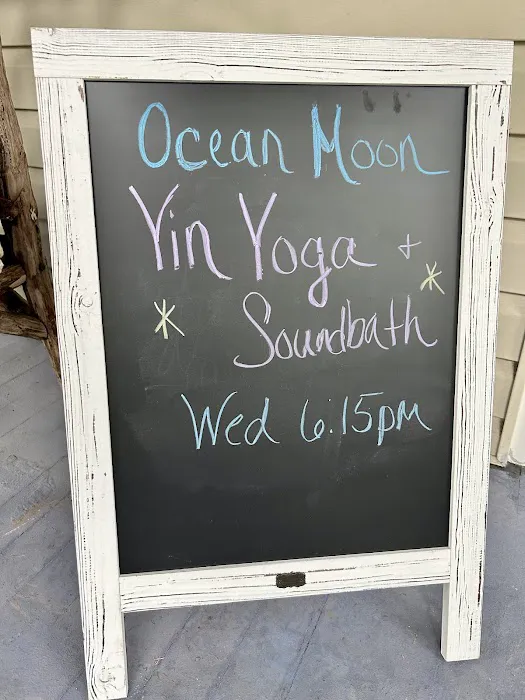 Ocean Moon
Yin Yoga +
Soundbath
Wed 6:15pm